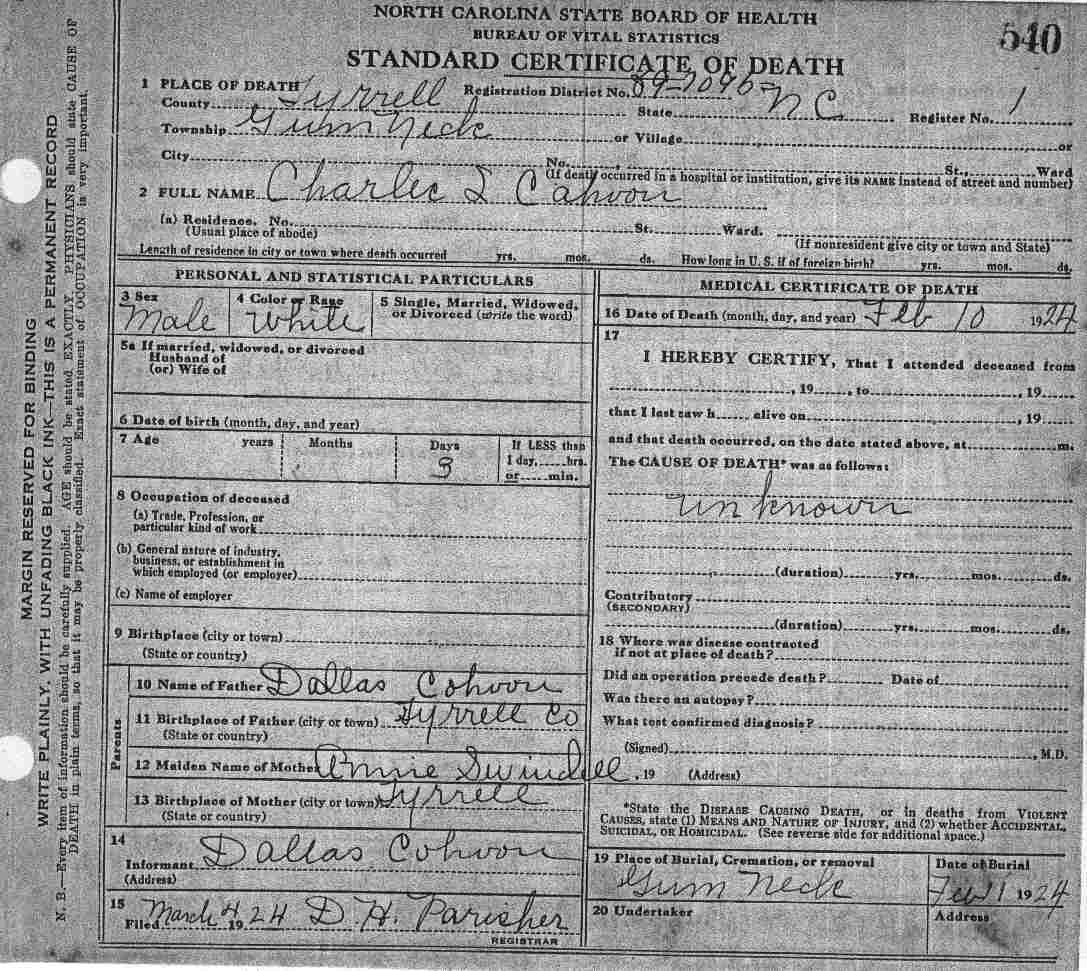 NORTH CAROLINA STATE BOARD OF HEALTH
BUREAU OF VITAL STATISTICS
540
STANDARD CERTIFICATE OF DEATH
1 PLACE OF DEATH Registration District No. 89-7095
County Tyrrell State NC Register No. 1
Township Gum Neck or Village or
City No. , St., Ward
(If death occurred in a hospital or institution, give its NAME instead of street and number)
2 FULL NAME Charlee L Cahoon
(a) Residence. No. St. Ward.
(Usual place of abode) (If nonresident give city or town and State)
Length of residence in city or town where death occurred yrs. mos. ds. How long in U. S. if of foreign birth? yrs. mos. ds.
PERSONAL AND STATISTICAL PARTICULARS
3 Sex 4 Color or Race 5 Single, Married, Widowed,
or Divorced (write the word)
Male White
5a If married, widowed, or divorced
Husband of
(or) Wife of
6 Date of birth (month, day, and year)
7 Age years Months Days If LESS than
1 day, hrs.
or min.
3
8 Occupation of deceased
(a) Trade, Profession, or
particular kind of work
(b) General nature of industry,
business, or establishment in
which employed (or employer)
(c) Name of employer
9 Birthplace (city or town)
(State or country)
Parents
10 Name of Father Dallas Cohoon
11 Birthplace of Father (city or town) Tyrrell Co
(State or country)
12 Maiden Name of Mother Annie Swindell
13 Birthplace of Mother (city or town) Tyrrell
(State or country)
14
Informant Dallas Cohoon
(Address)
15
Filed March 4 1924 D. H. Parisher
REGISTRAR
MEDICAL CERTIFICATE OF DEATH
16 Date of Death (month, day, and year) Feb 10 1924
17
I HEREBY CERTIFY, That I attended deceased from
, 19 , to , 19
that I last saw h alive on , 19
and that death occurred, on the date stated above, at m.
The CAUSE OF DEATH* was as follows:
unknown
(duration) yrs. mos. ds.
Contributory
(SECONDARY)
(duration) yrs. mos. ds.
18 Where was disease contracted
if not at place of death?
Did an operation precede death? Date of
Was there an autopsy?
What test confirmed diagnosis?
(Signed) , M.D.
, 19 (Address)
*State the DISEASE CAUSING DEATH, or in deaths from VIOLENT
CAUSES, state (1) MEANS AND NATURE OF INJURY, and (2) whether ACCIDENTAL,
SUICIDAL, OR HOMICIDAL. (See reverse side for additional space.)
19 Place of Burial, Cremation, or removal Date of Burial
Gum Neck Feb 11 1924
20 Undertaker Address
MARGIN RESERVED FOR BINDING
WRITE PLAINLY, WITH UNFADING BLACK INK—THIS IS A PERMANENT RECORD
N. B.—Every item of information should be carefully supplied. AGE should be stated EXACTLY. PHYSICIANS should state CAUSE OF
DEATH in plain terms, so that it may be properly classified. Exact statement of OCCUPATION is very important.